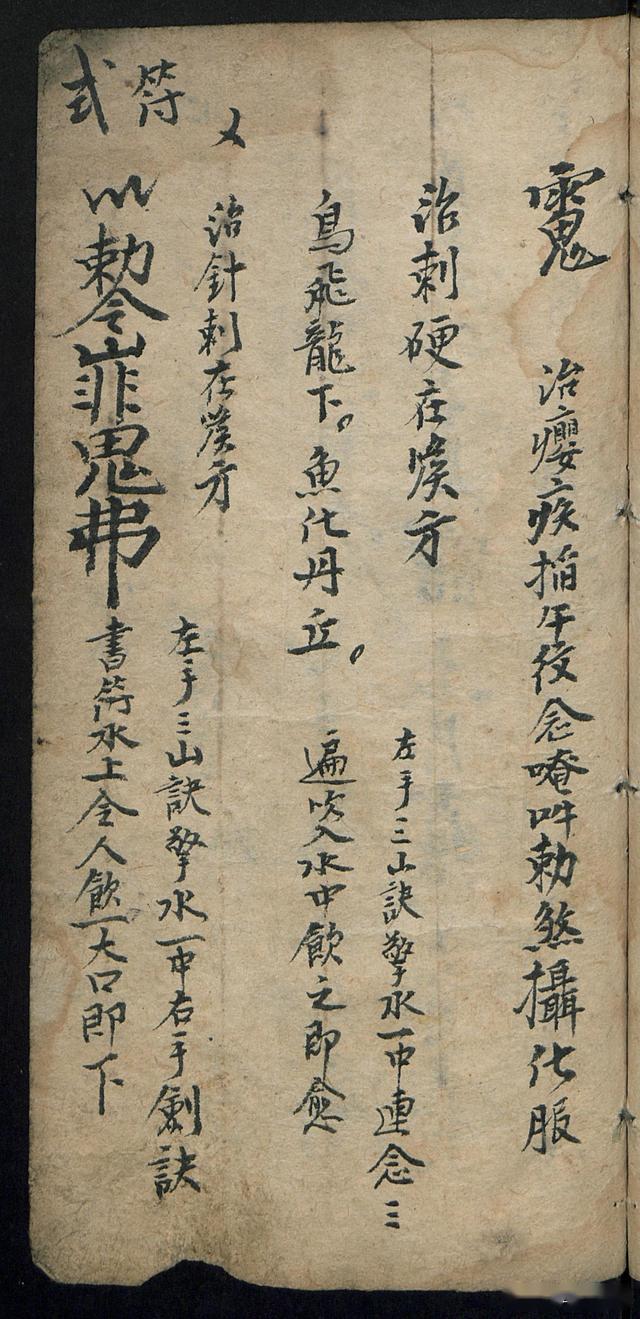 治癭疾掐午紋念唵吽勅煞攝化服
治刺硬在喉方
左手三山訣擎水一中連念三
鳥飛龍下。魚化丹丘。
遍吹入水中飲之即愈
又
治針刺在喉方
左手三山訣擎水一中右手劍訣
符
式
勅令山非鬼弗
書符水上令人飲一大口即下